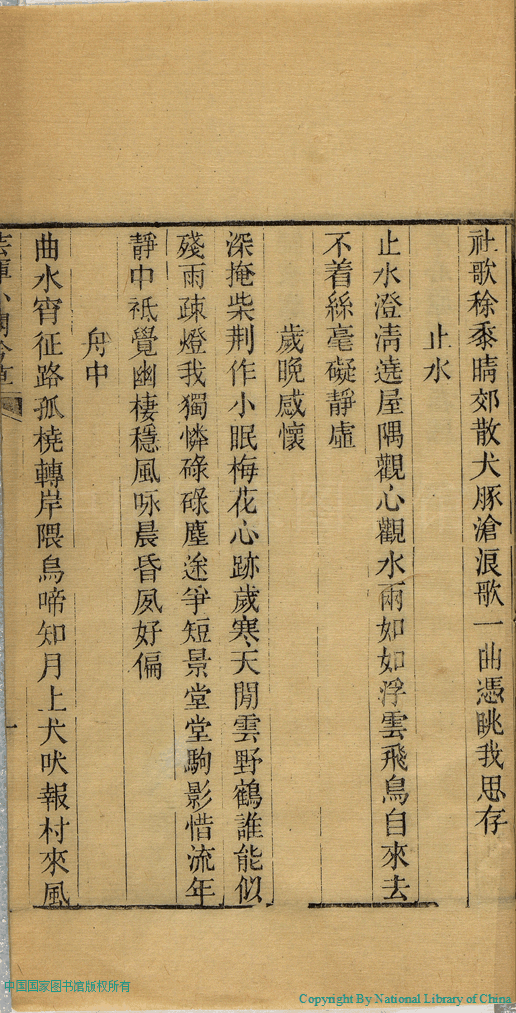 社歌稌黍晴郊散犬豚滄浪歌一曲憑眺我思存
止水
止水澄清遶屋隅觀心觀水兩如如浮雲飛鳥自來去
不着絲毫礙靜虛
歲晚感懷
深掩柴荆作小眠梅花心跡歲寒天閒雲野鶴誰能似
殘雨疎燈我獨憐碌碌塵途爭短景堂堂駒影惜流年
靜中祗覺幽棲穩風咏晨昏夙好偏
舟中
曲水宵征路孤橈轉岸隈鳥啼知月上犬吠報村來風
一
中国国家图书馆版权所有
Copyright By National Library of China